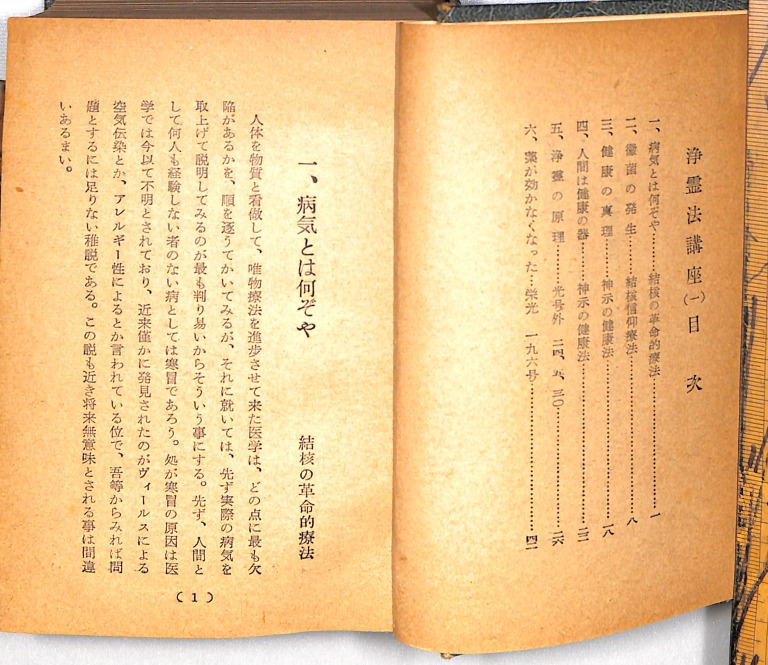 浄霊法講座(一)目次
一、病気とは何ぞや………結核の革命的療法………………………一
二、黴菌の発生………結核信仰療法………………………八
三、健康の真理………神示の健康法………………………一八
四、人間は健康の器……神示の健康法………………………二二
五、浄霊の原理………光号外 二四、五、三〇………………………二六
六、薬が効かなくなった…栄光 一九六号………………………四二
一、病気とは何ぞや
結核の革命的療法
人体を物質と看做して、唯物療法を進歩させて来た医学は、どの点に最も欠
陥があるかを、順を逐うてかいてみるが、それに就いては、先ず実際の病気を
取上げて説明してみるのが最も判り易いからそういう事にする。先ず、人間と
して何人も経験しない者のない病としては寒冒であろう。処が寒冒の原因は医
学では今以て不明とされており、近来僅かに発見されたのがヴィールスによる
空気伝染とか、アレルギー性によるとか言われている位で、吾等からみれば問
題とするには足りない稚説である。この説も近き将来無意味とされる事は間違
いあるまい。
(1)